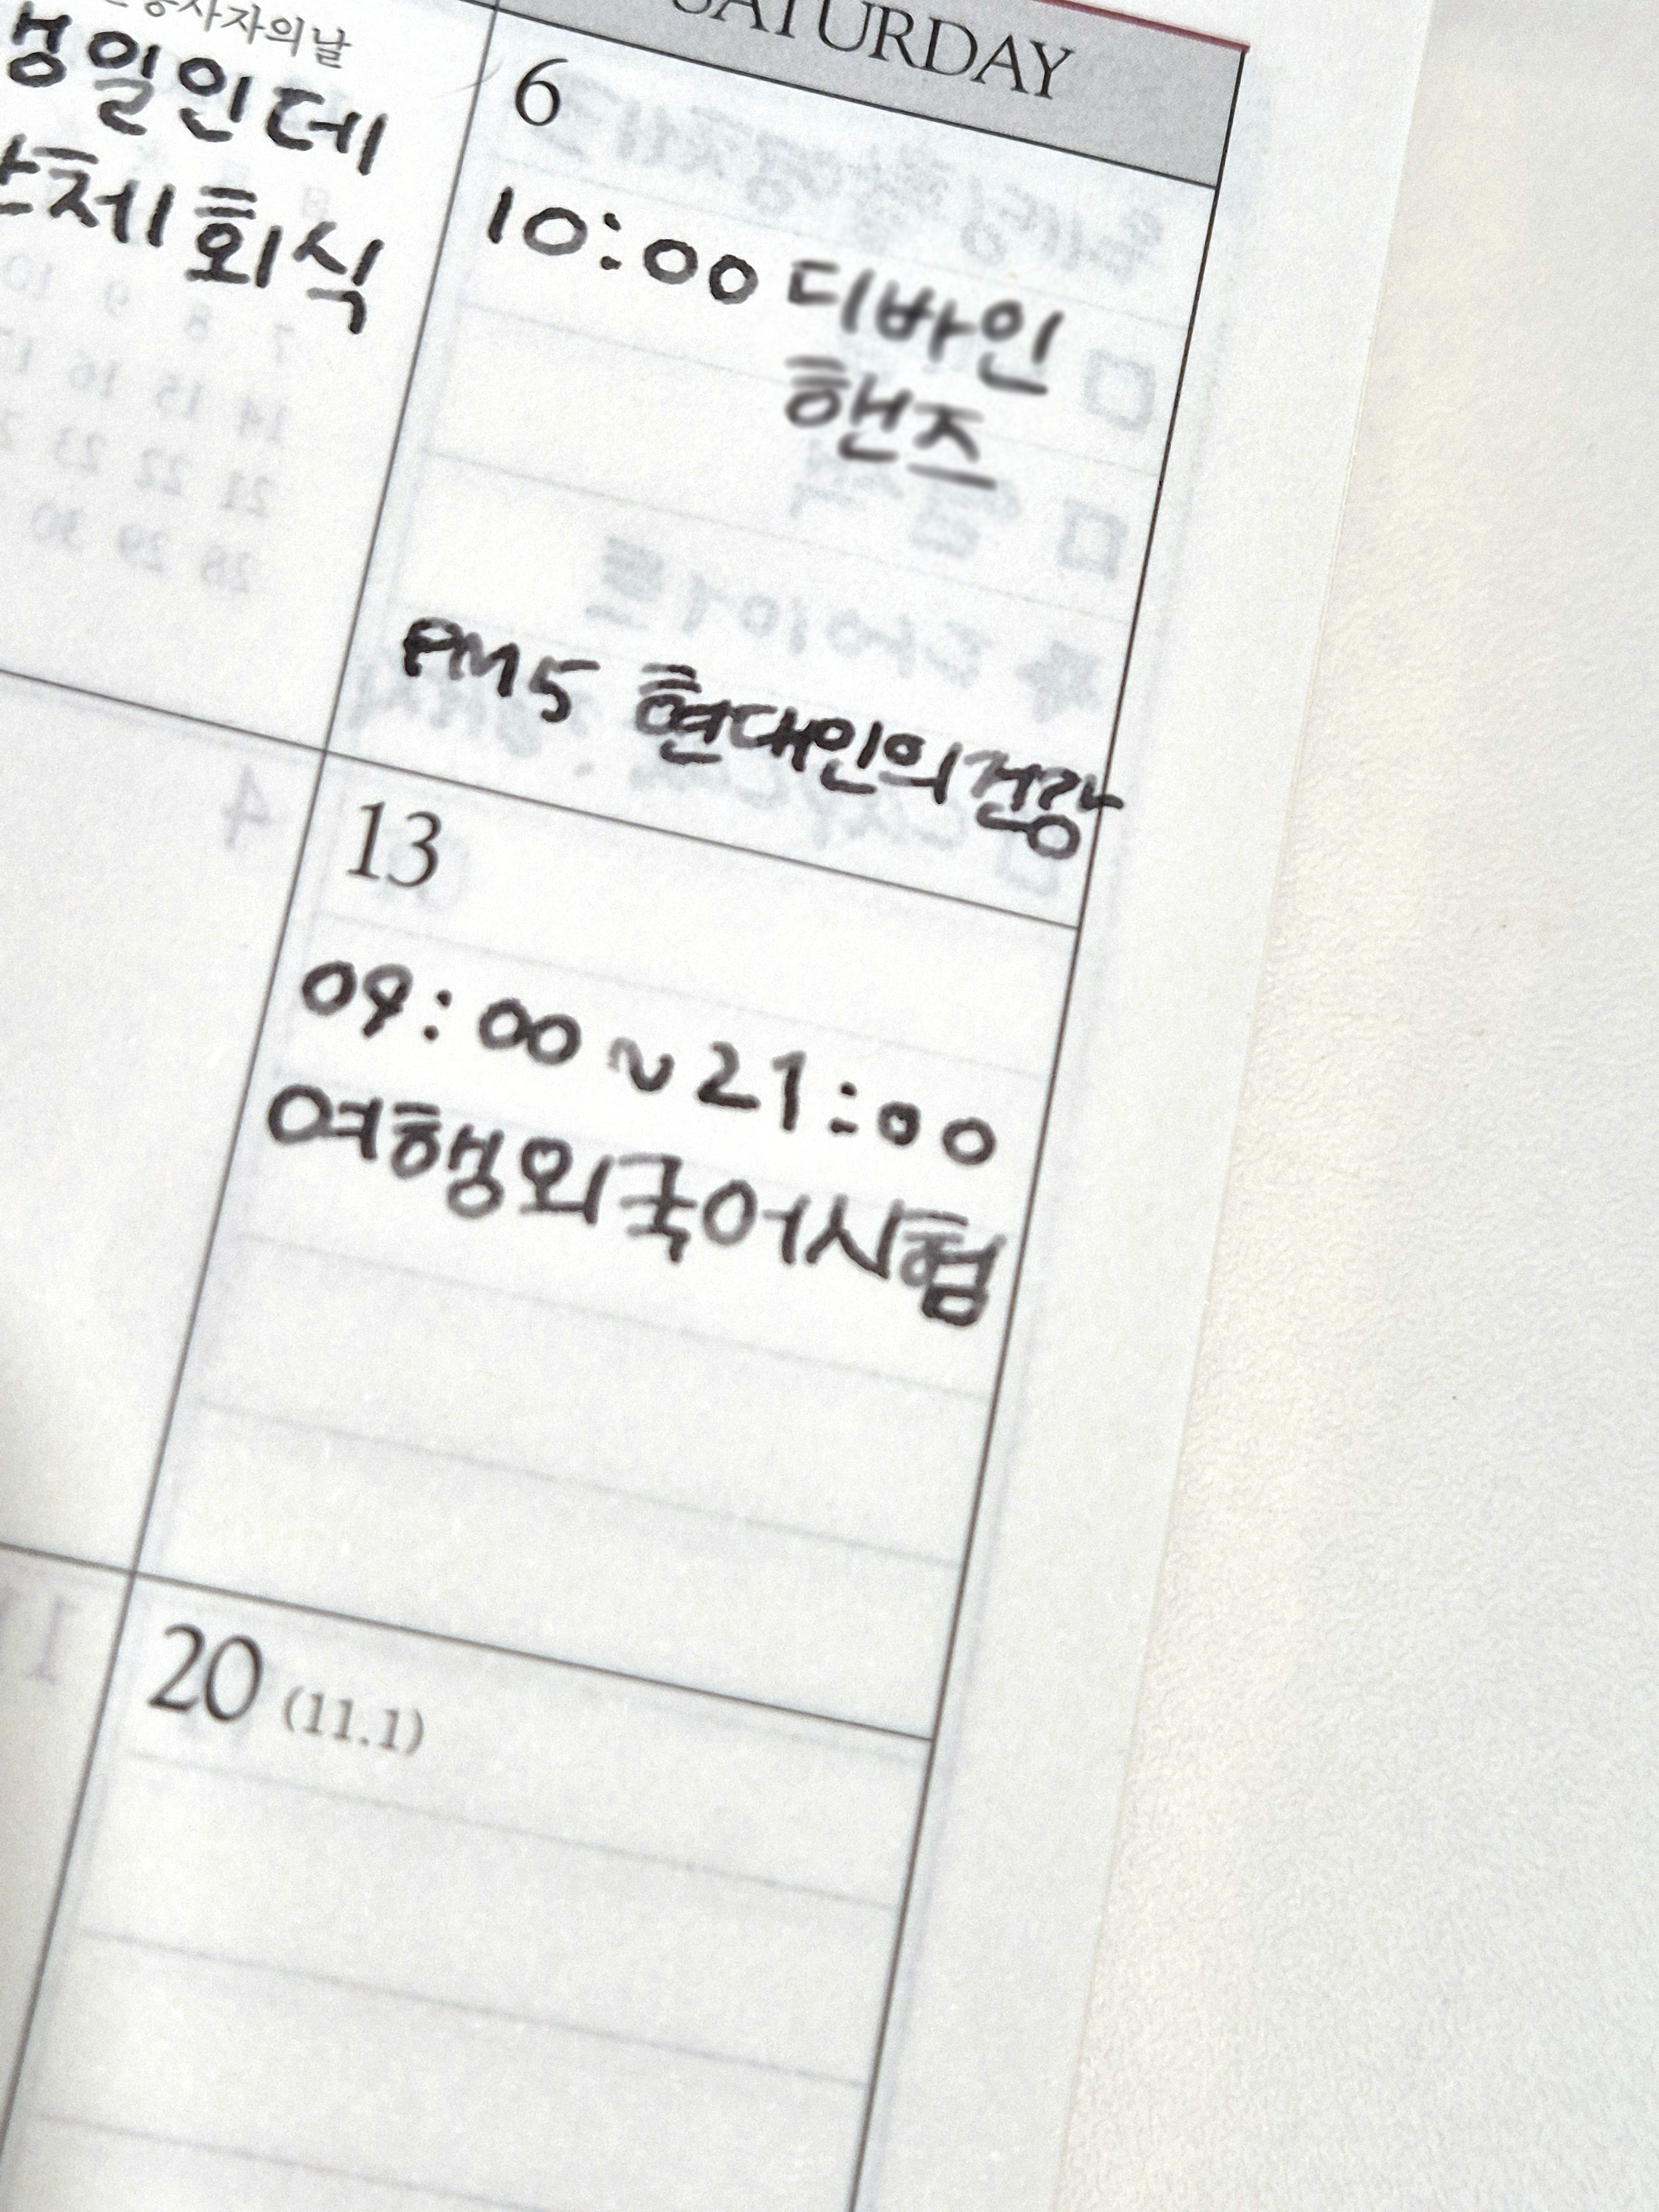 사자의날
일인데
체회식
SATURDAY
6
10:00 디바인
핸즈
PM5 현대인의건강
13
09:00~21:00
여행외국어시험
20 (11.1)